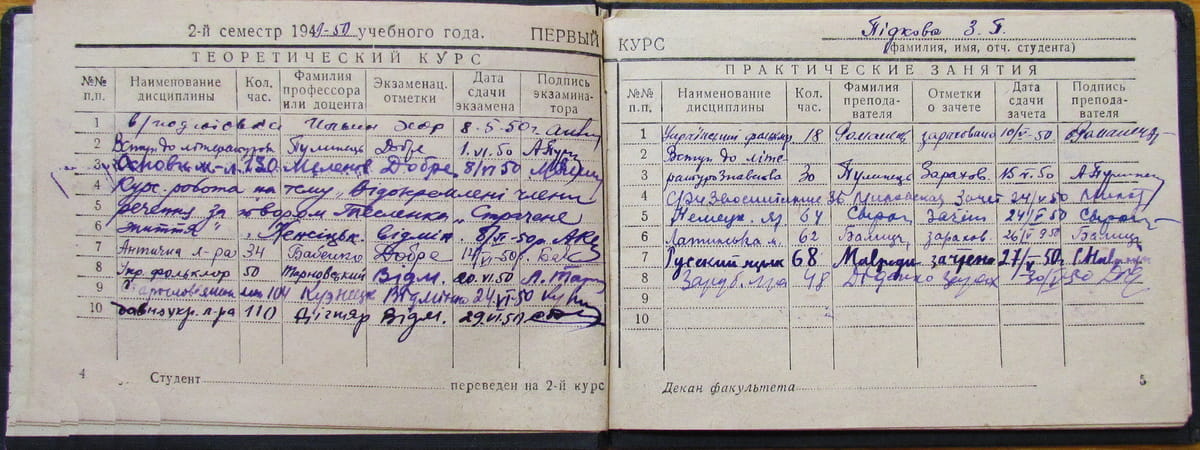 2-й семестр 1949-50 учебного года. ПЕРВЫЙ
ТЕОРЕТИЧЕСКИЙ КУРС
№№ п.п. Наименование дисциплины Кол. час. Фамилия профессора или доцента Экзаменац. отметки Дата сдачи экзамена Подпись экзаминатора
1 в/подготовка Ильин Хор 8-5-50г.
2 Вступ до літературозн. Пулинець Добре 1.VI.50 А Пул
3 Основи м.-л. 130 Добре 8/VI 50
4 Курс. робота на тему „Відокремлені члени
5 речення за твором Тесленка „Страчене
6 життя" відмін. VI-50р.
7 Антична л-ра 34 Бабенко Добре 14/VI-50р. Баб
8 Укр. фольклор 50 Тарновський Відм. 20.VI.50 Л. Тар
9 Старослов'янська мова 104 Кузнецов Відмінно 24.VI-50 Кузн
10 Давня укр. л-ра 110 Дігтяр Відм. 29.VI.50
4 Студент переведен на 2-й курс
КУРС Підкова З. П.
(фамилия, имя, отч. студента)
ПРАКТИЧЕСКИЕ ЗАНЯТИЯ
№№ п.п. Наименование дисциплины Кол. час. Фамилия преподавателя Отметки о зачете Дата сдачи зачета Подпись преподавателя
1 Український фольклор 18 зараховано 10/VI-50
2 Вступ до літе-
3 ратурознавства 30 Пулинець Зарахов. 15.VI.50 А Пулинец
4 36 Зачет 24/V 50
5 Немецк. яз 64 зачёт 24/VI-50
6 Латинська м. 62 зарахов. 26/VI 950
7 Русский язык 68 Мавроди зачтено 27/VI-50г. Г. Мавроди
8 Заруб. л-ра 48 30/VI-50
9
10
Декан факультета 5